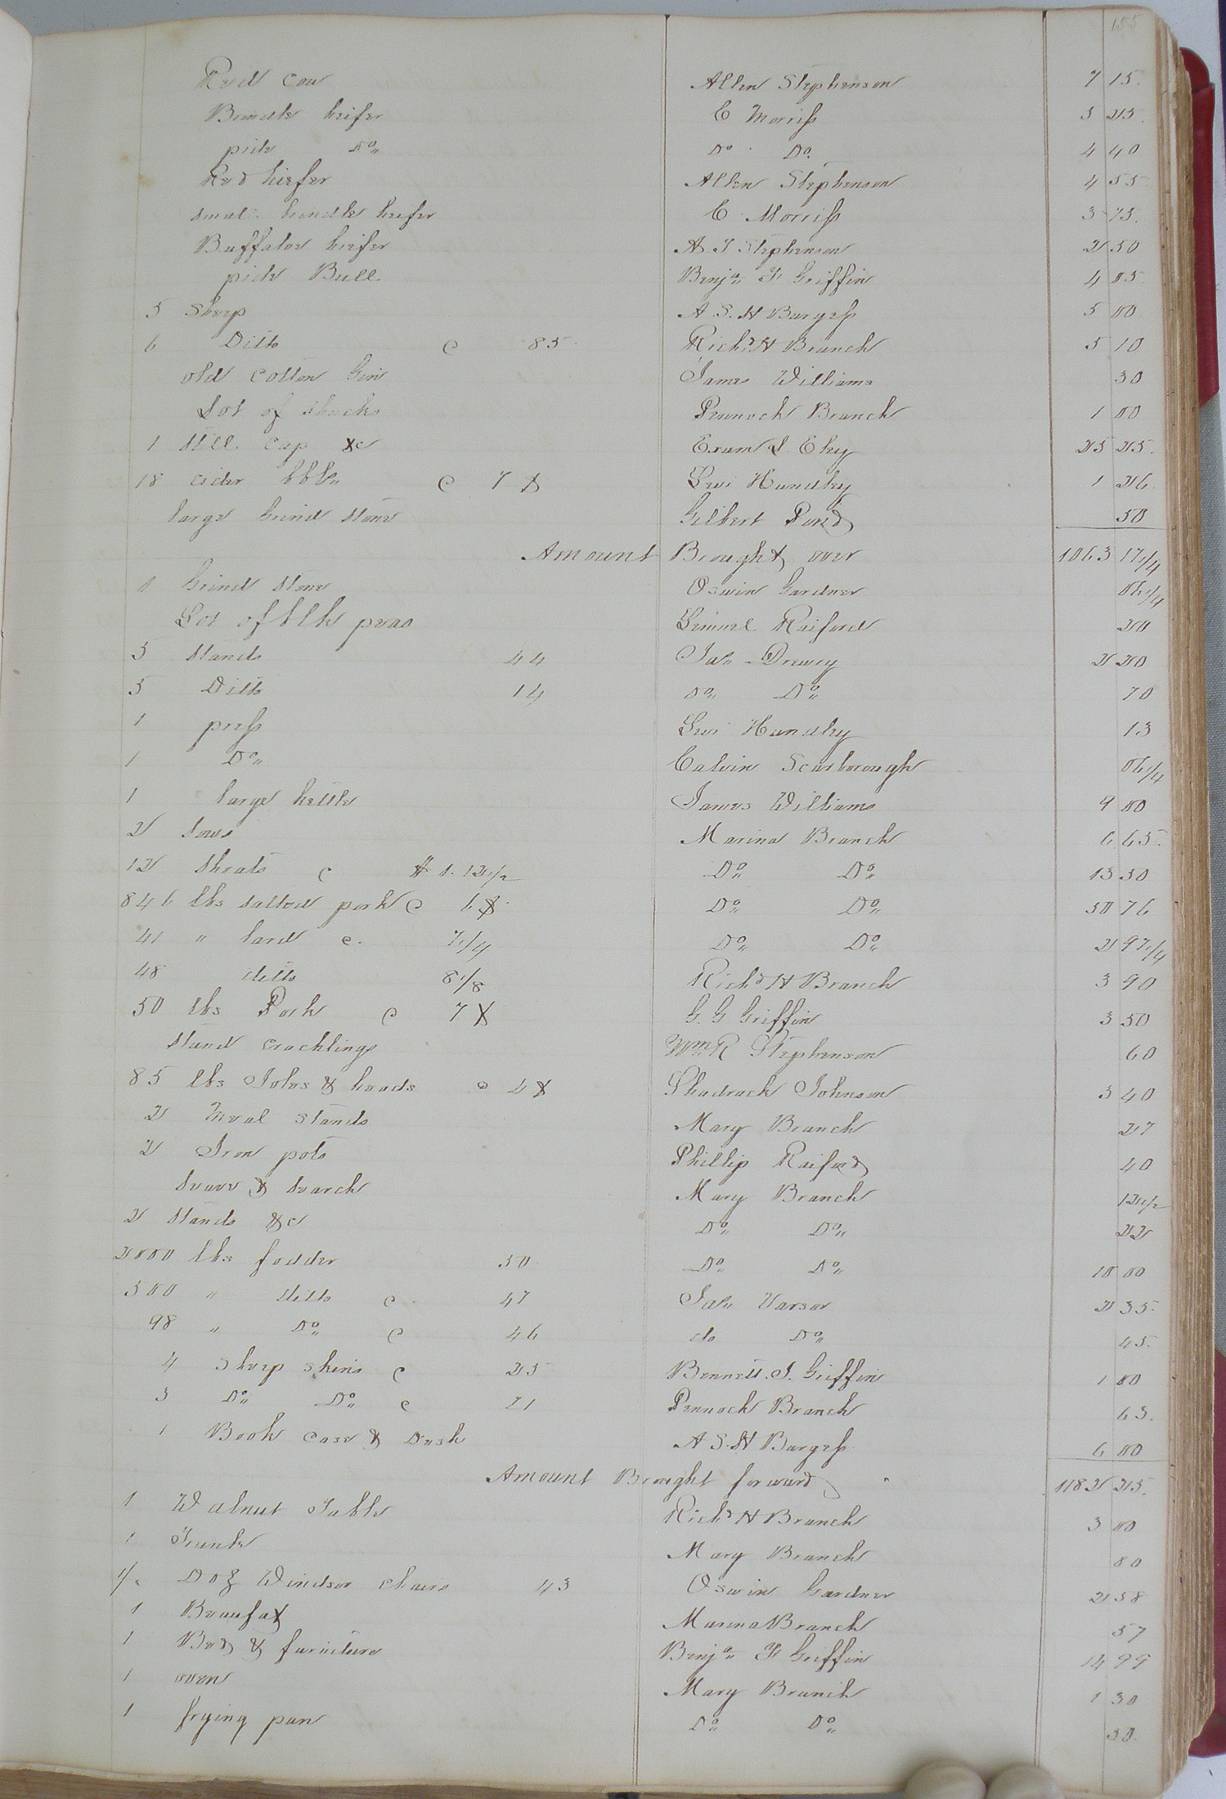 155
Red cow Allen Stephenson 7 15
Brindle heifer C Morriss 3 25
pide Do Do Do 4 40
Red hiefer Allen Stephenson 4 55
smal brindle heifer C Morriss 3 75
Buffaloe heifer A T Stephenson 2 50
pide Bull Benja F Griffin 4 05
5 Sheep A. S. H Burgess 5 00
6 Ditto @ 85 Richd H Branch 5 10
old cotton Gin James Williams 30
Lot of Pennock Branch 1 00
1 Still Cap &c Exum L Eley 25 25
18 cider bbls @ 7 ¢ Levi Handley 1 26
large Grind stone Gilbert Pond 50
Amount Brought over 1063 17 1/4
1 Grind stone Oswin Gardner 06 1/4
Lot of blk peas Limuel Raiford 20
5 stands 44 Jas Drewry 2 20
5 Ditto 14 Do Do 70
1 press Levi Handley 13
1 Do Calvin Scarborough 06 1/4
1 large kettle James Williams 9 00
2 Sows Marina Branch 6 65
12 Shoats @ $1.12 1/2 Do Do 13 50
846 lbs salted pork @ 6 ¢ Do Do 50 76
41 " lard @ 7 1/4 Do Do 2 97 1/4
48 ditto 8 1/8 Richd H Branch 3 90
50 lbs Pork @ 7 ¢ G. G Griffin 3 50
stand cracklings Wm R Stephenson 60
85 lbs Joles & heads @ 4 ¢ Shadrach Johnson 3 40
2 Meal stands Mary Branch 27
2 Iron pots Phillip Raiford 40
& Mary Branch 12 1/2
2 stands &c Do Do 22
2000 lbs fodder 50 Do Do 10 00
500 " ditto @ 47 Jas Varser 2 35
98 " Do @ 46 do Do 45
4 Sheep skins @ 25 Bennett. J. Griffin 1 00
3 Do Do @ 21 Pennock Branch 63
1 Book case & Desk A S. H Burgess 6 00
Amount Brought forward 1182 25
1 Walnut Table Richd H Branch 3 00
1 Trunk Mary Branch 80
1/2 Doz Windsor chairs 43 Oswin Gardner 2 58
1 Beaufat Marina Branch 57
1 Bed & furniture Benja F Griffin 14 99
1 oven Mary Branch 1 30
1 frying pan Do Do 30